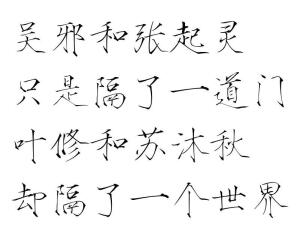 吴邪和张起灵
只是隔了一道门
叶修和苏沐秋
却隔了一个世界